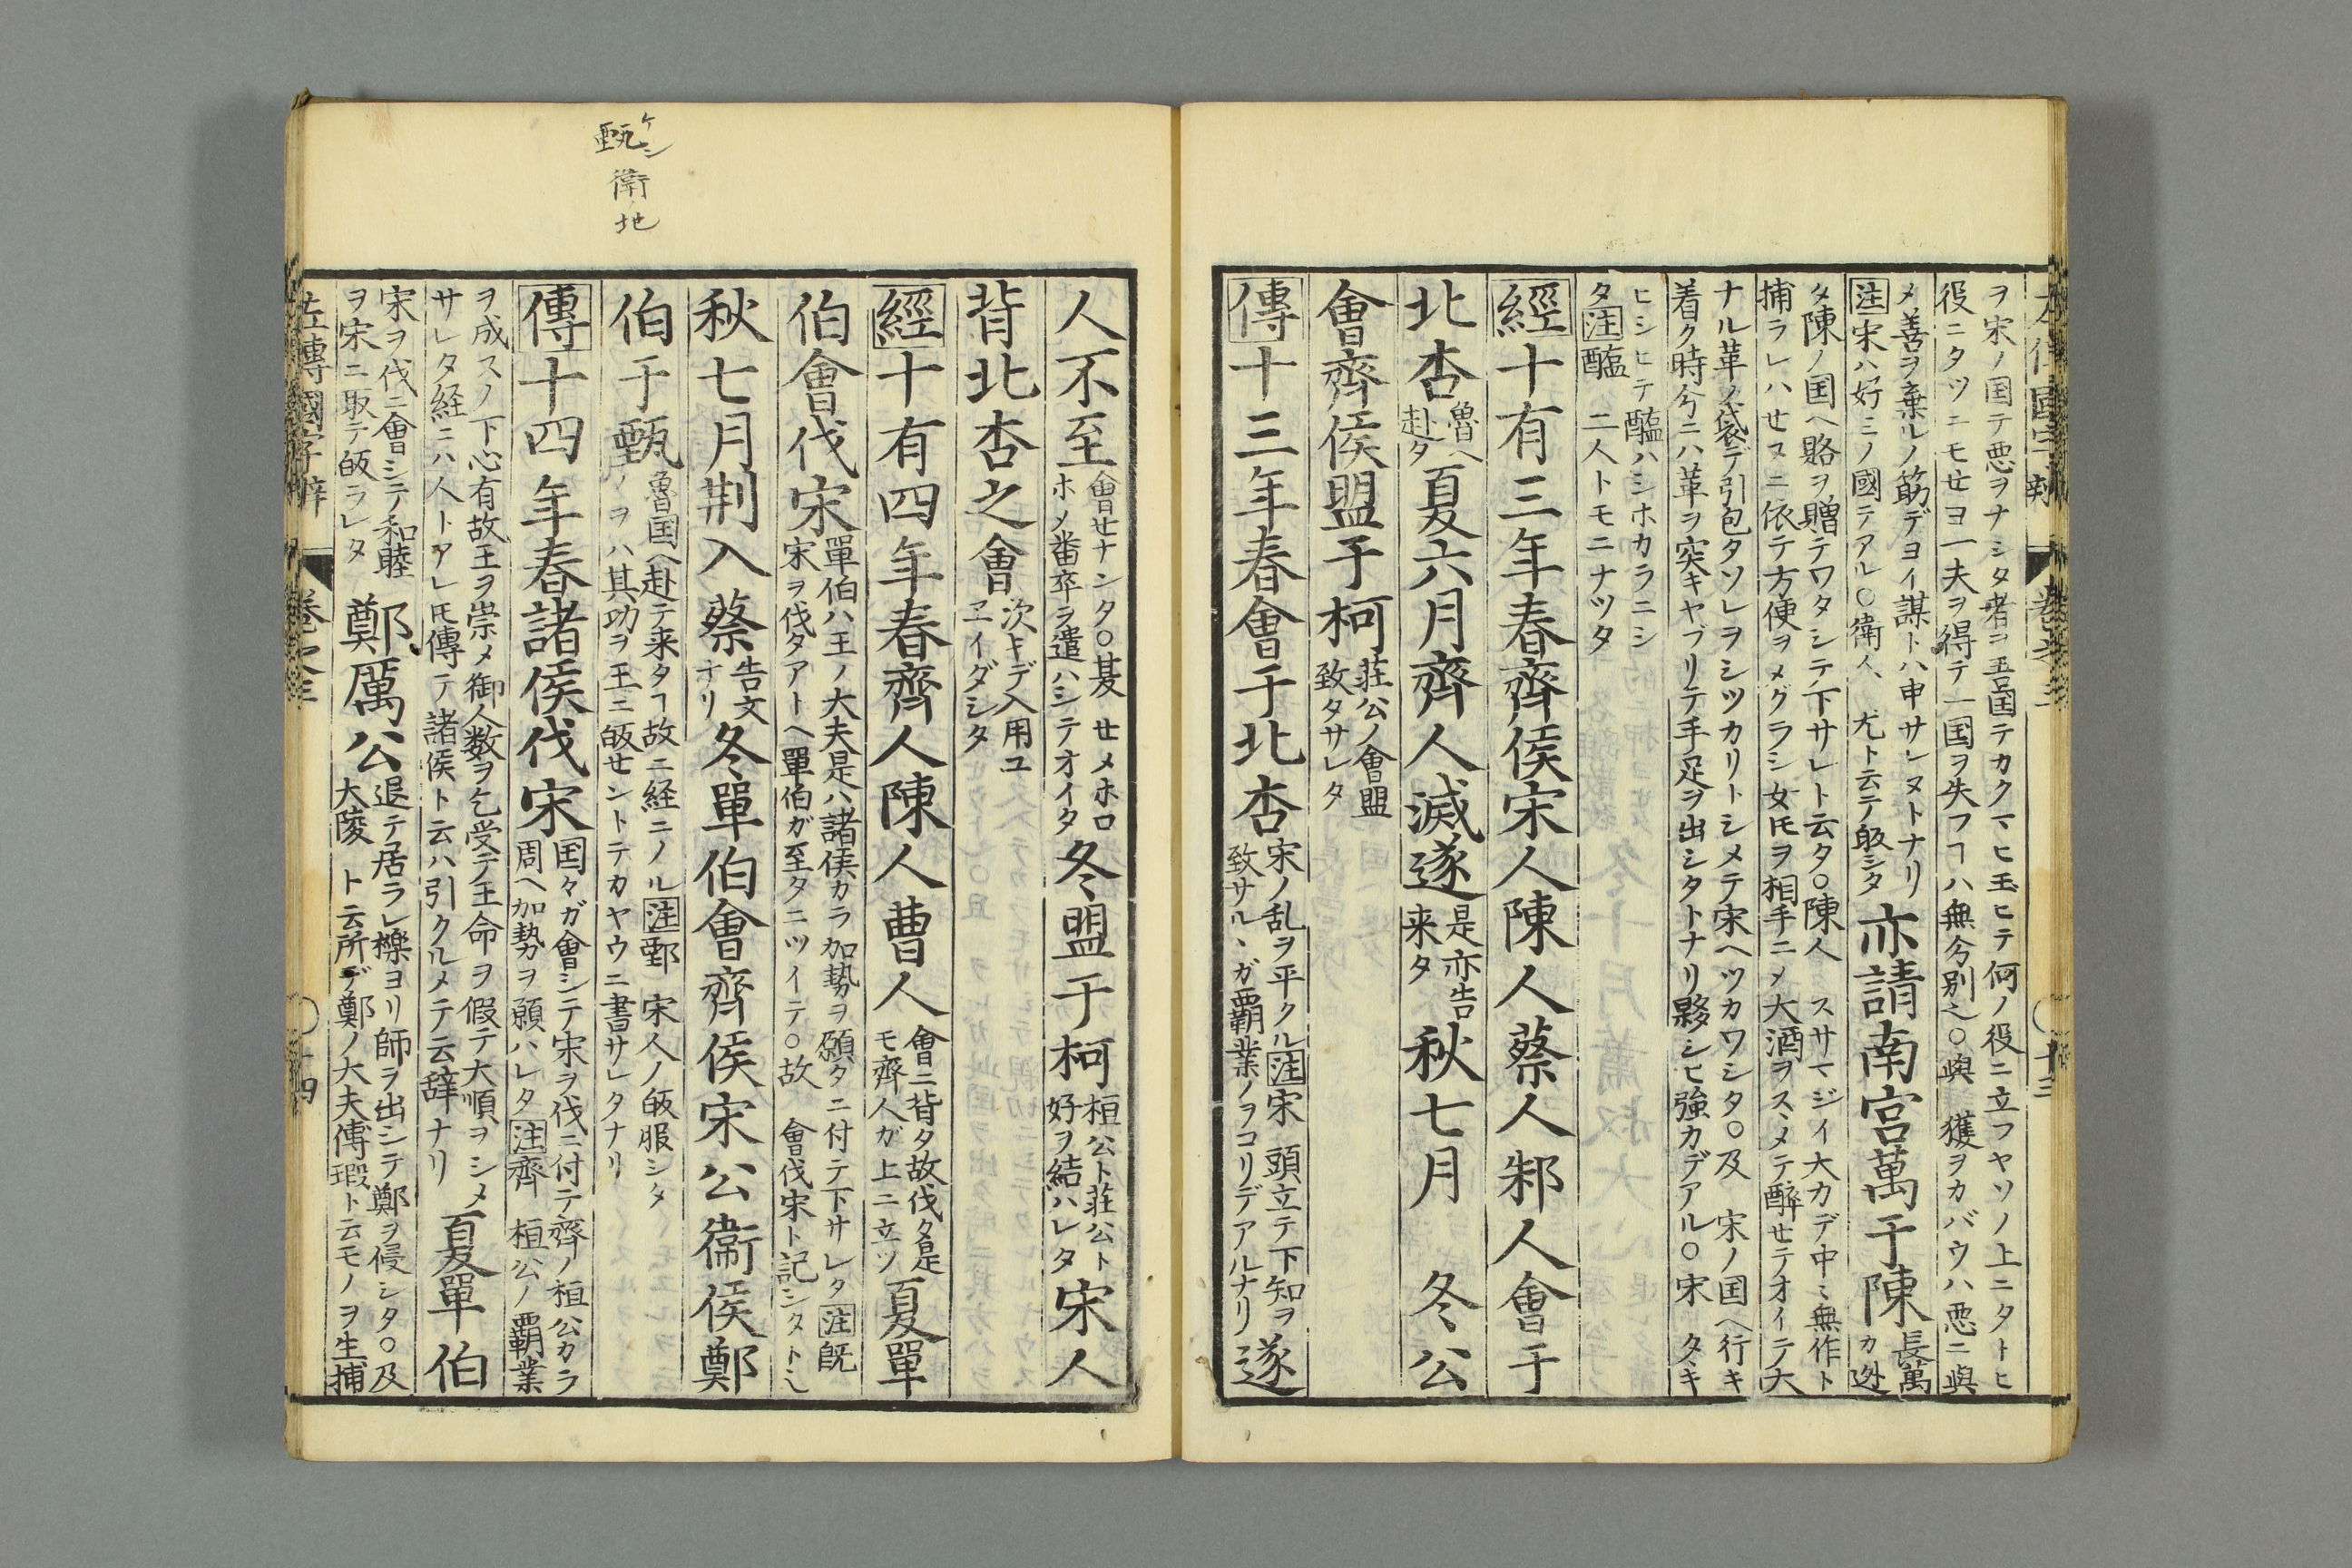 ヲ宋ノ国テ悪ヲナシタ者ヲ吾国テカクマヒ玉ヒテ何ノ役ニ立フヤソノ上ニタトヒ
役ニタツニモせヨ一夫ヲ得テ一国ヲ失フヿハ無分別也○與 獲ヲカバウハ悪ニ與
メ善ヲ棄ルノ筋デヨイ謀トハ申サレヌトナリ
注宋ハ好ミノ國テアル○衛人 尤ト云テ皈シタ
亦請南宮萬于陳
長萬
カ迯
タ陳ノ国ヘ賂ヲ贈テワタシテ下サレト云タ○陳人 スサマジイ大力デ中ミ無作ト
捕ラレハせヌニ依テ方便ヲメグラシ女ㇳモヲ相手ニメ大酒ヲスヽメテ醉せテオイテ大
ナル革ノ袋デ引包タソレヲシツカリトシメテ宋ヘツカワシタ○及 宋ノ国ヘ行キ
着ク時分ニハ革ヲ突キヤブリテ手足ヲ出シタトナリ夥シヒ強力デアル○宋 タヽキ
ヒシヒテ醢ハシホカラニシ
タ注醢 二人トモニナツタ
經十有三年春齊侯宋人陳人蔡人邾人會于
北杏
魯ヘ
赴タ
夏六月齊人滅遂
是亦告
来タ
秋七月 冬公
會齊侯盟于柯
莊公ノ會盟
致タサレタ
傳十三年春會于北杏
宋ノ乱ヲ平クル注宋 頭立テ下知ヲ
致サルヽガ覇業ノヲコリデアルナリ
遂
人不至
會せナンタ○夏 せメホロ
ホメ番卒ヲ遣ハシテオイタ
冬盟于柯
桓公ト莊公ト
好ヲ結ハレタ
宋人
背北杏之會
次キデ入用ユ
ヱイダシタ
經十有四年春齊人陳人曹人
會ニ背タ故伐タ是
モ齊人ガ上ニ立ツ
夏單
伯會伐宋
單伯ハ王ノ大夫是ハ諸侯カラ加勢ヲ願タニ付テ下サレタ注既
宋ヲ伐タアトヘ單伯ガ至タニツイテ○故 會伐宋ト記シタト也
秋七月荆入蔡
告文
ナリ
冬單伯會齊侯宋公衞侯鄭
伯于甄
魯国ヘ赴テ来タヿ故ニ経ニノル注鄄 宋人ノ皈服シタ
ノヲハ其功ヲ王ニ皈せントテカヤウニ書サレタナリ
傳十四年春諸侯伐宋
国々ガ會シテ宋ヲ伐ニ付テ齊ノ桓公カラ
周ヘ加勢ヲ願ハレタ注齊 桓公ノ覇業
ヲ成スノ下心有故王ヲ崇メ御人数ヲ乞受テ王命ヲ假テ大順ヲシメ
サレタ経ニハ人トアレㇳモ傳テ諸侯ト云ハ引クルメテ云辞ナリ
夏單伯
宋ヲ伐ニ會シテ和睦
ヲ宋ニ取テ皈ラレタ
鄭厲公
退テ居ラレ櫟ヨリ師ヲ出シテ鄭ヲ侵シタ○及
大陵 ト云所デ鄭ノ大夫傅瑕ト云モノヲ生捕
左傳國字辯 卷之三 ○十四
甄 ケン
衛ノ地